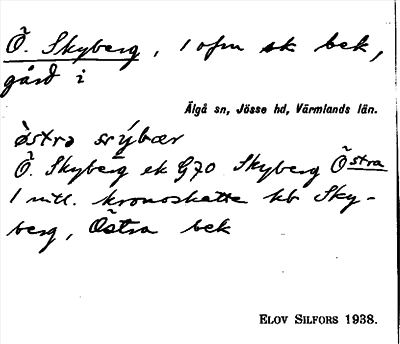 Ö. Skyberg, 1 ofm sk bek,
gård i
Älgå sn, Jösse hd, Värmlands län.
östra sɤýbær
Ö. Skyberg ek G70 Skyberg Östra
1 mtl. kronoskatte kb Sky-
berg, Östra bek
ELOV SILFORS 1938.